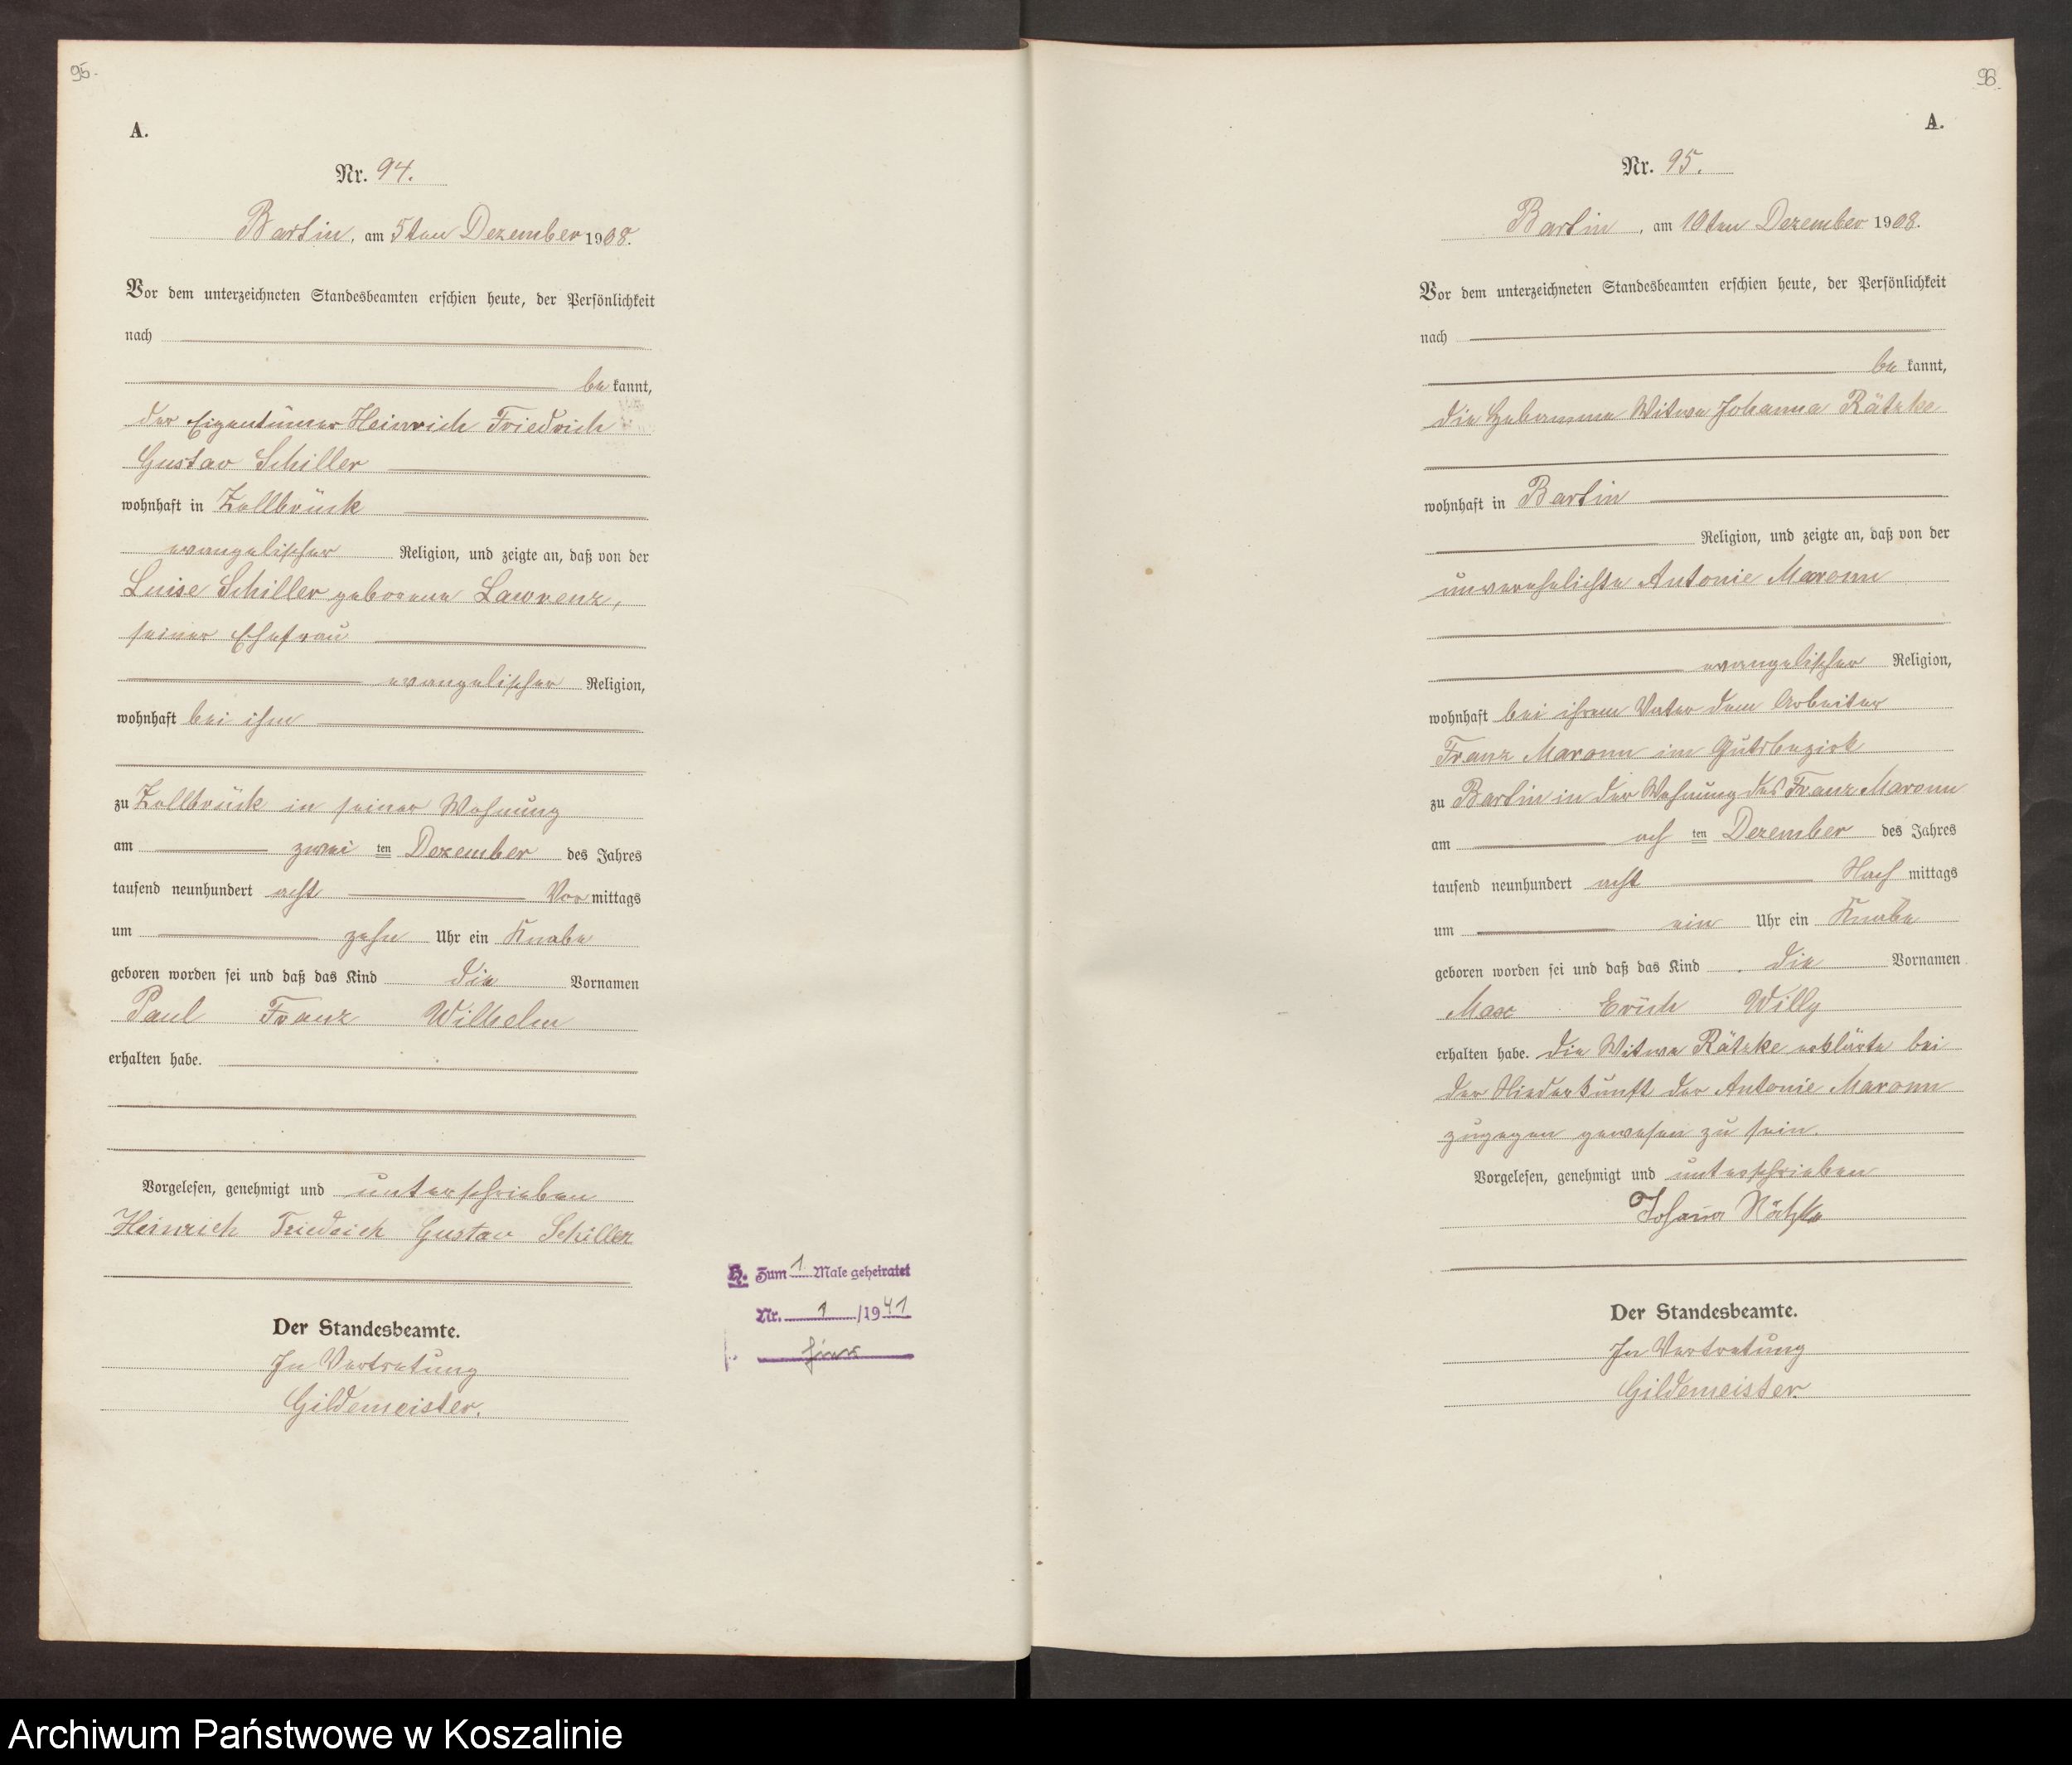 95.
A.
Nr. 94.
Bartin, am 5ten Dezember 1908.
Vor dem unterzeichneten Standesbeamten erschien heute, der Persönlichkeit
nach
be kannt,
der Eigentümer Heinrich Friedrich
Gustav Schiller
wohnhaft in Zollbrück
evangelischer Religion, und zeigte an, daß von der
Luise Schiller geborene Lawrenz,
seiner Ehefrau
evangelischer Religion,
wohnhaft bei ihm
zu Zollbrück in seiner Wohnung
am zwei ten Dezember des Jahres
tausend neunhundert acht Vor mittags
um zehn Uhr ein Knabe
geboren worden sei und daß das Kind die Vornamen
Paul Franz Wilhelm
erhalten habe.
Vorgelesen, genehmigt und unterschrieben
Heinrich Friedrich Gustav Schiller
Der Standesbeamte.
In Vertretung
Gildemeister.
H. Zum 1 Male geheiratet
Nr. 1 /1941
hier
96
A.
Nr. 95.
Bartin, am 10ten Dezember 1908.
Vor dem unterzeichneten Standesbeamten erschien heute, der Persönlichkeit
nach
be kannt,
die Hebamme Witwe Johanna Rätzke
wohnhaft in Bartin
Religion, und zeigte an, daß von der
unverehelichte Antonie Maronn
evangelischer Religion,
wohnhaft bei ihrem Vater dem Arbeiter
Franz Maronn im Gutsbezirk
zu Bartin in der Wohnung des Franz Maronn
am ach ten Dezember des Jahres
tausend neunhundert acht Nach mittags
um ein Uhr ein Knabe
geboren worden sei und daß das Kind die Vornamen
Max Erich Willy
erhalten habe. Die Witwe Rätzke erklärte bei
der Niederkunft der Antonie Maronn
zugegen gewesen zu sein.
Vorgelesen, genehmigt und unterschrieben
Johanna Rätzke
Der Standesbeamte.
In Vertretung
Gildemeister.
Archiwum Państwowe w Koszalinie